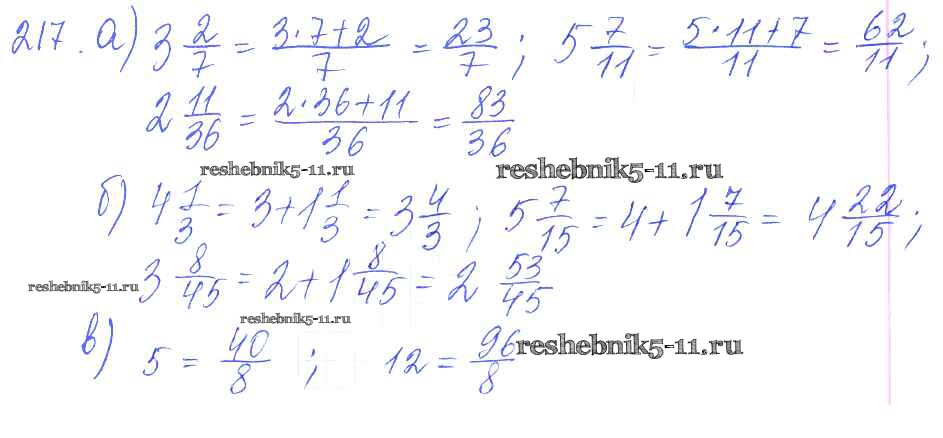 217. а) 3 2/7 = (3·7+2)/7 = 23/7; 5 7/11 = (5·11+7)/11 = 62/11;
2 11/36 = (2·36+11)/36 = 83/36
reshebnik5-11.ru reshebnik5-11.ru
б) 4 1/3 = 3+1 1/3 = 3 4/3; 5 7/15 = 4+1 7/15 = 4 22/15;
3 8/45 = 2+1 8/45 = 2 53/45
reshebnik5-11.ru
reshebnik5-11.ru
в) 5 = 40/8; 12 = 96/8
reshebnik5-11.ru